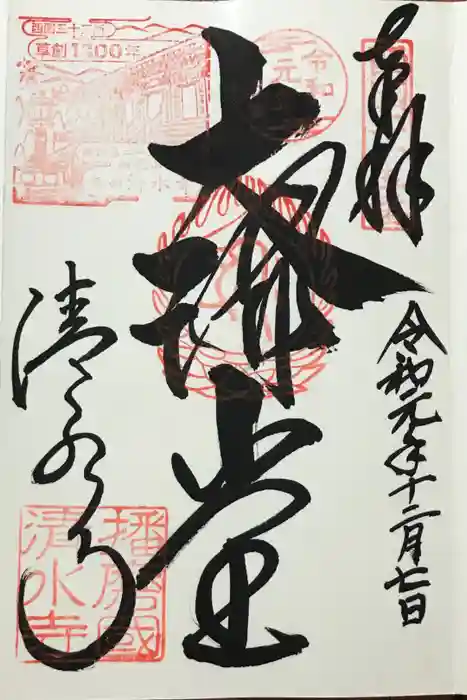 奉拝
令和元年十二月七日
令和
元
大講堂
西国三十三所
草創1300年
清水寺
播磨國
清水寺